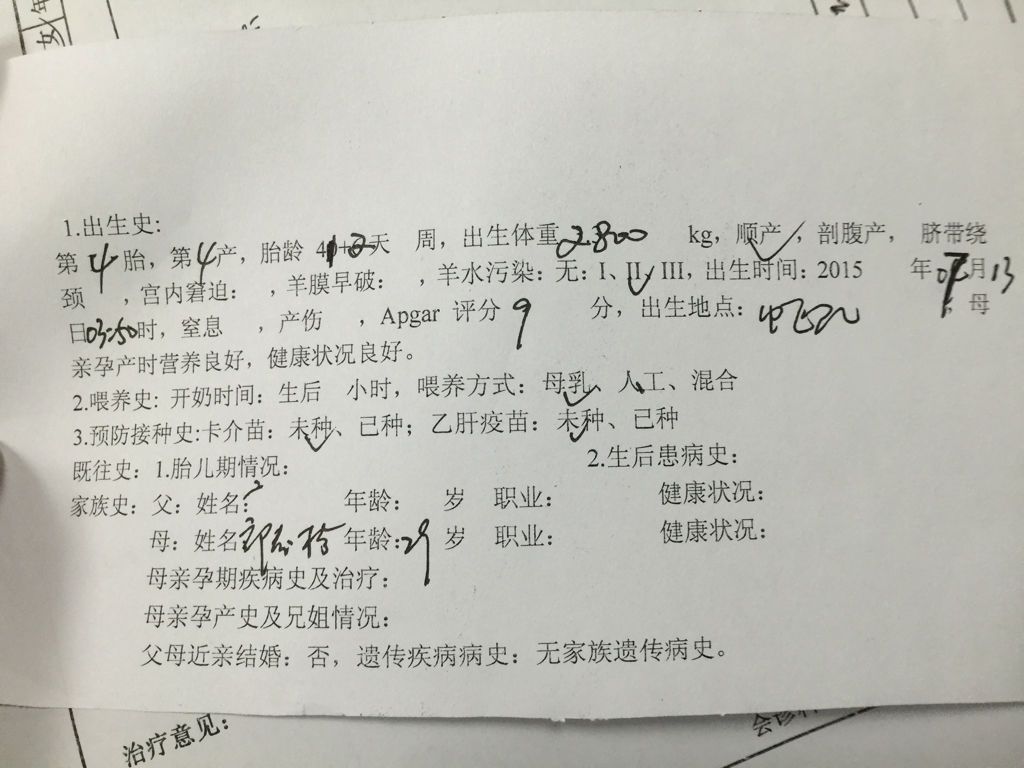 女 年
1.出生史:
第4胎，第4产，胎龄 天 周，出生体重2.800 kg，顺产，剖腹产， 脐带绕
颈 ，宫内窘迫： ，羊膜早破： ，羊水污染：无：I、II、III，出生时间：2015 年07月13
日03:50时，窒息 ，产伤 ，Apgar 评分9 分，出生地点： ；母
亲孕产时营养良好，健康状况良好。
2.喂养史: 开奶时间：生后 小时，喂养方式：母乳、人工、混合
3.预防接种史:卡介苗：未种、已种；乙肝疫苗：未种、已种
既往史：1.胎儿期情况： 2.生后患病史：
家族史：父：姓名：? 年龄： 岁 职业： 健康状况：
母：姓名 年龄：29 岁 职业： 健康状况：
母亲孕期疾病史及治疗：
母亲孕产史及兄姐情况：
父母近亲结婚：否，遗传疾病病史：无家族遗传病史。
治疗意见：
会诊科